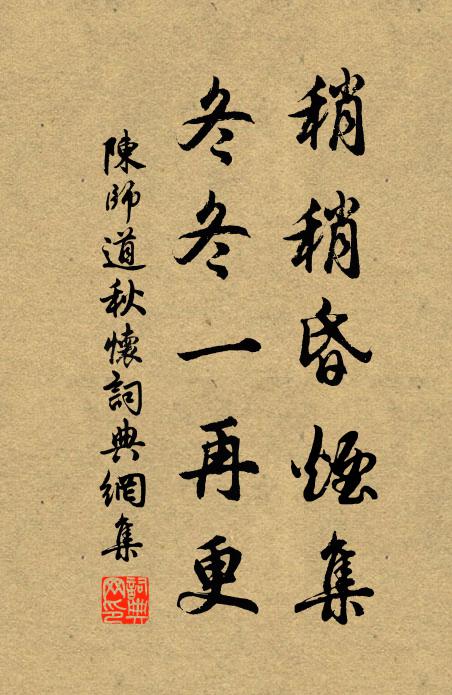 稍稍昏煙集
冬冬一再更
陳師道秋懷詞典網集
詞典网印